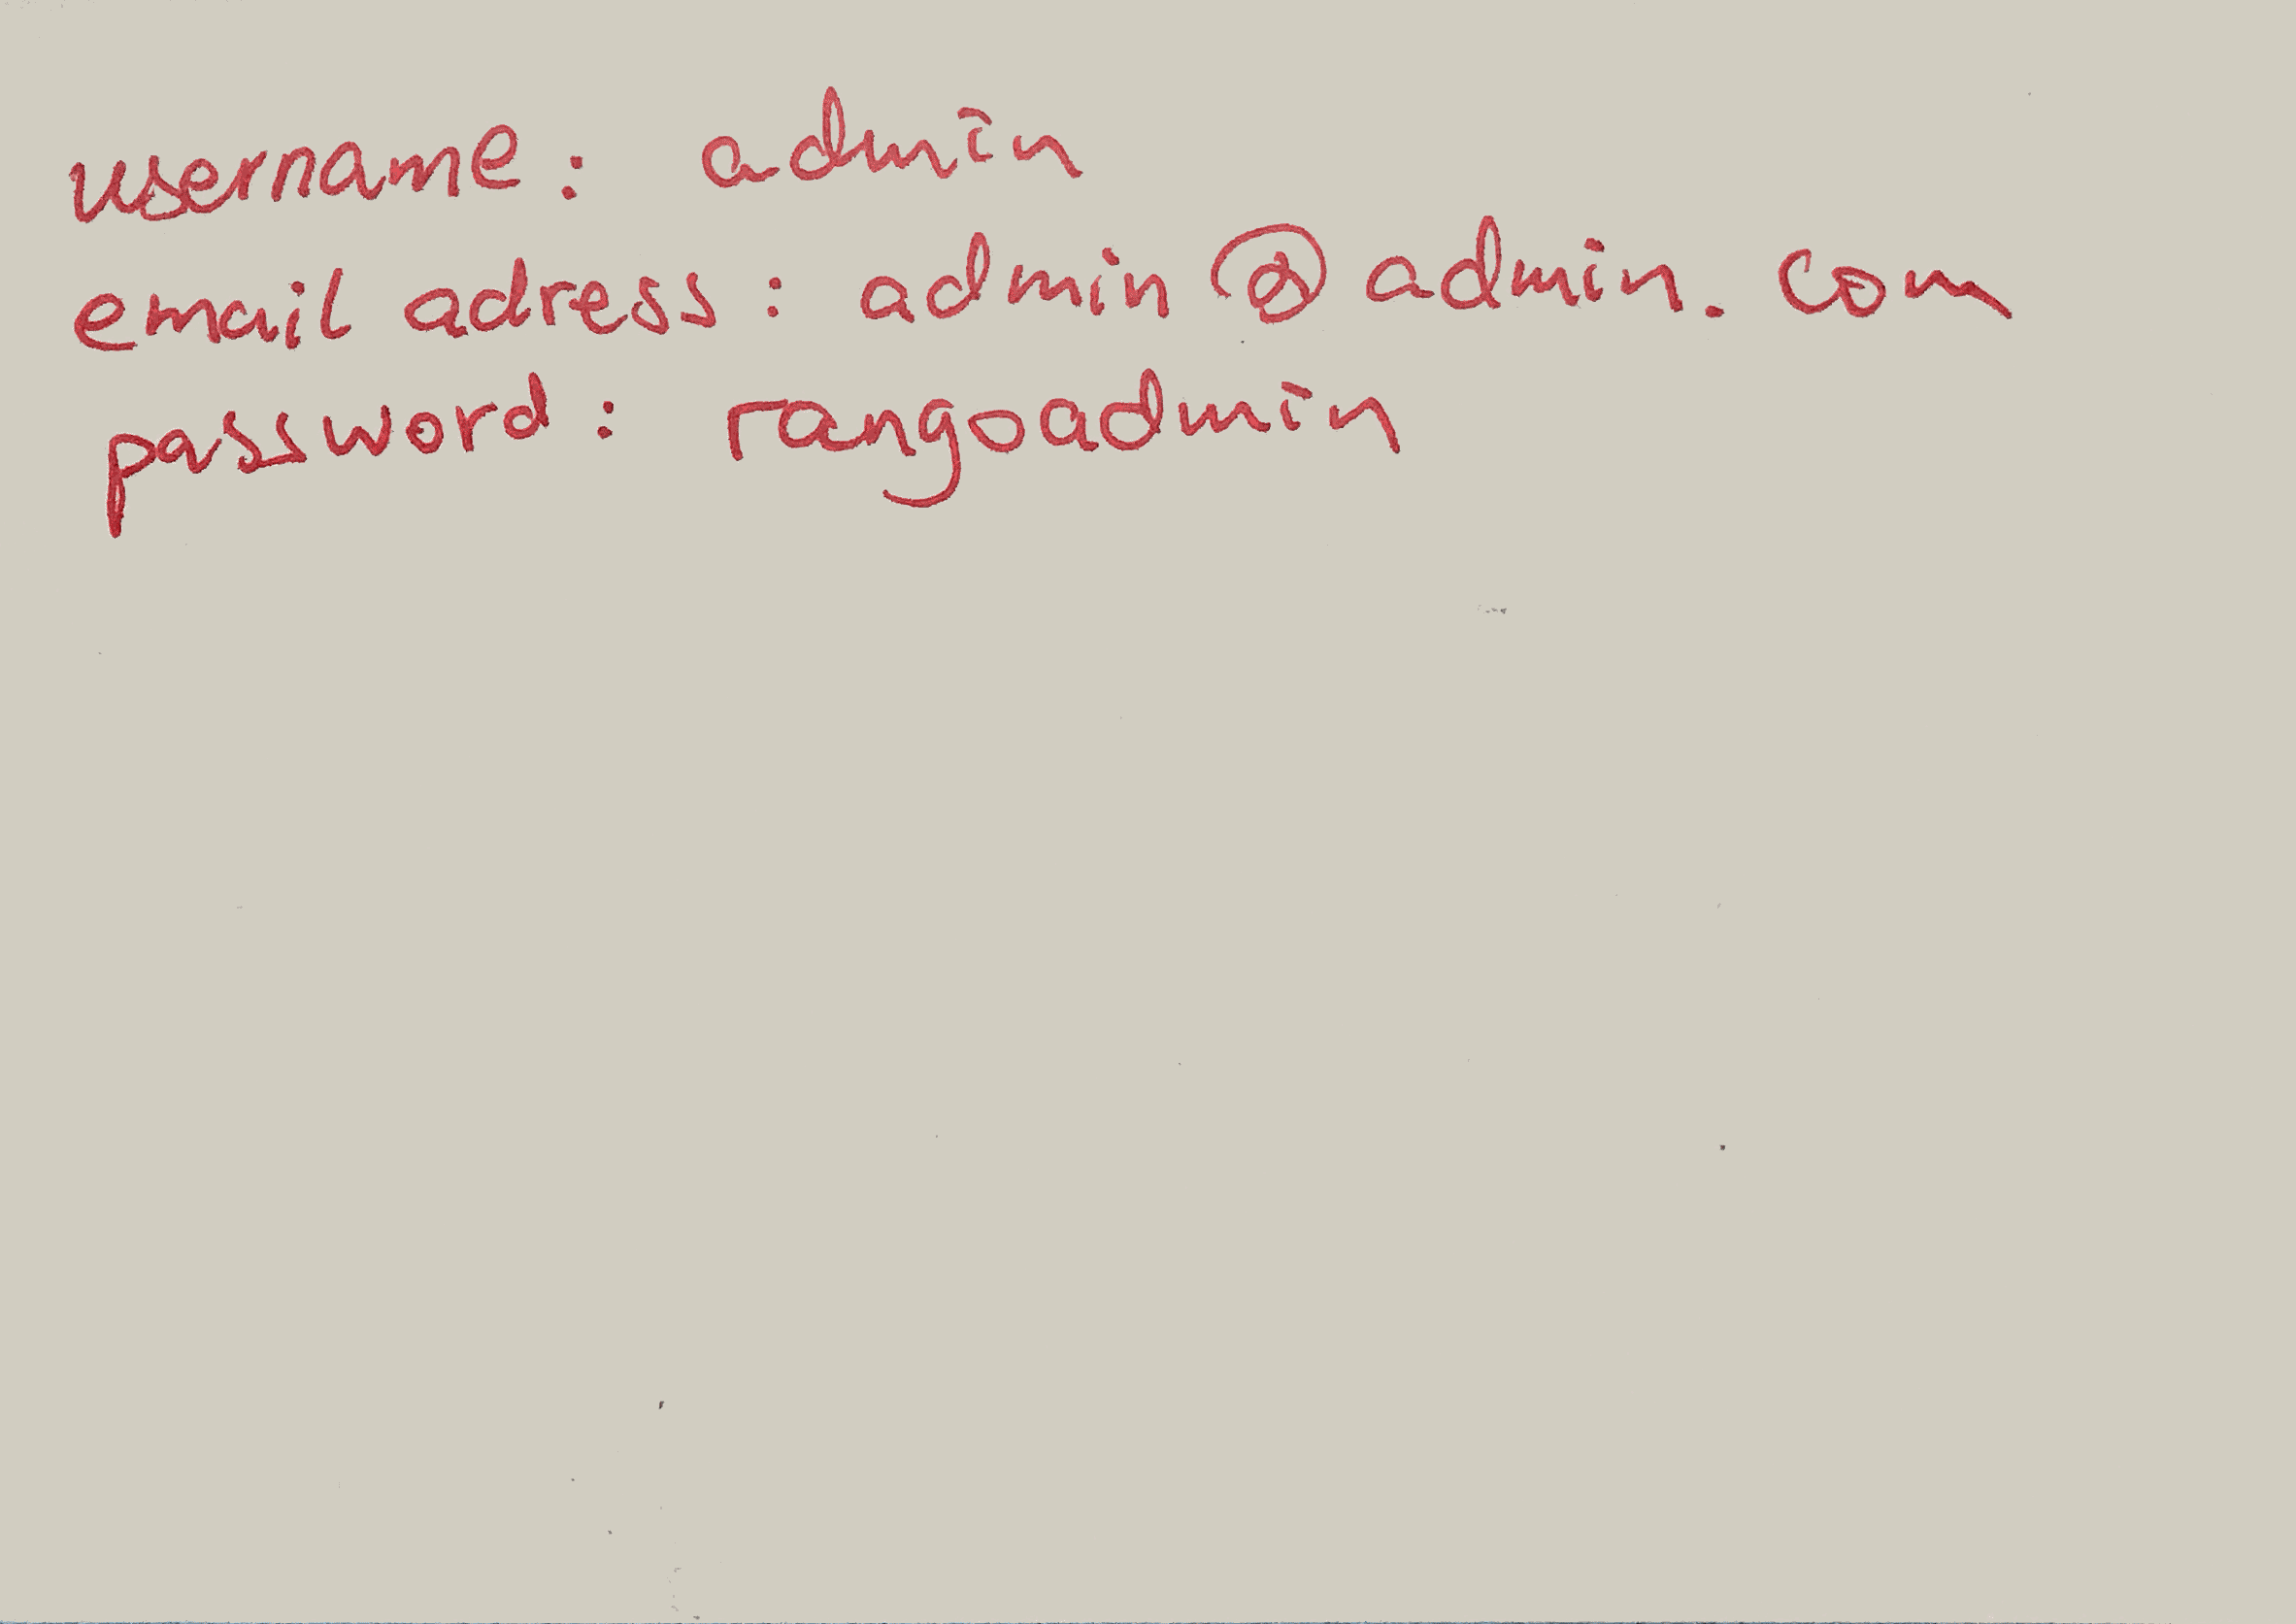 username: admin
email adress: admin@admin.com
password: rangoadmin